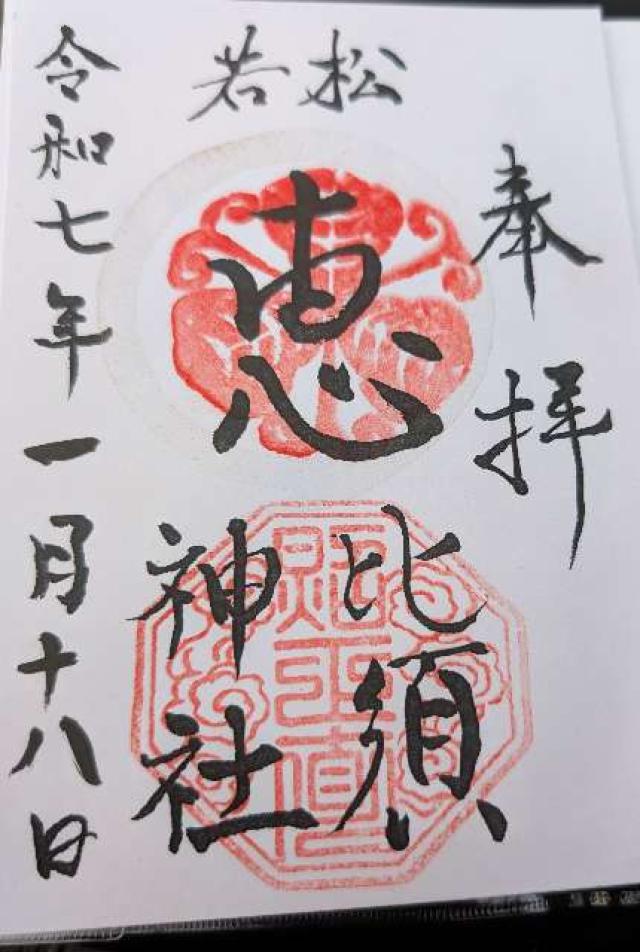 奉拝
若松
恵比須
神社
令和七年一月十八日